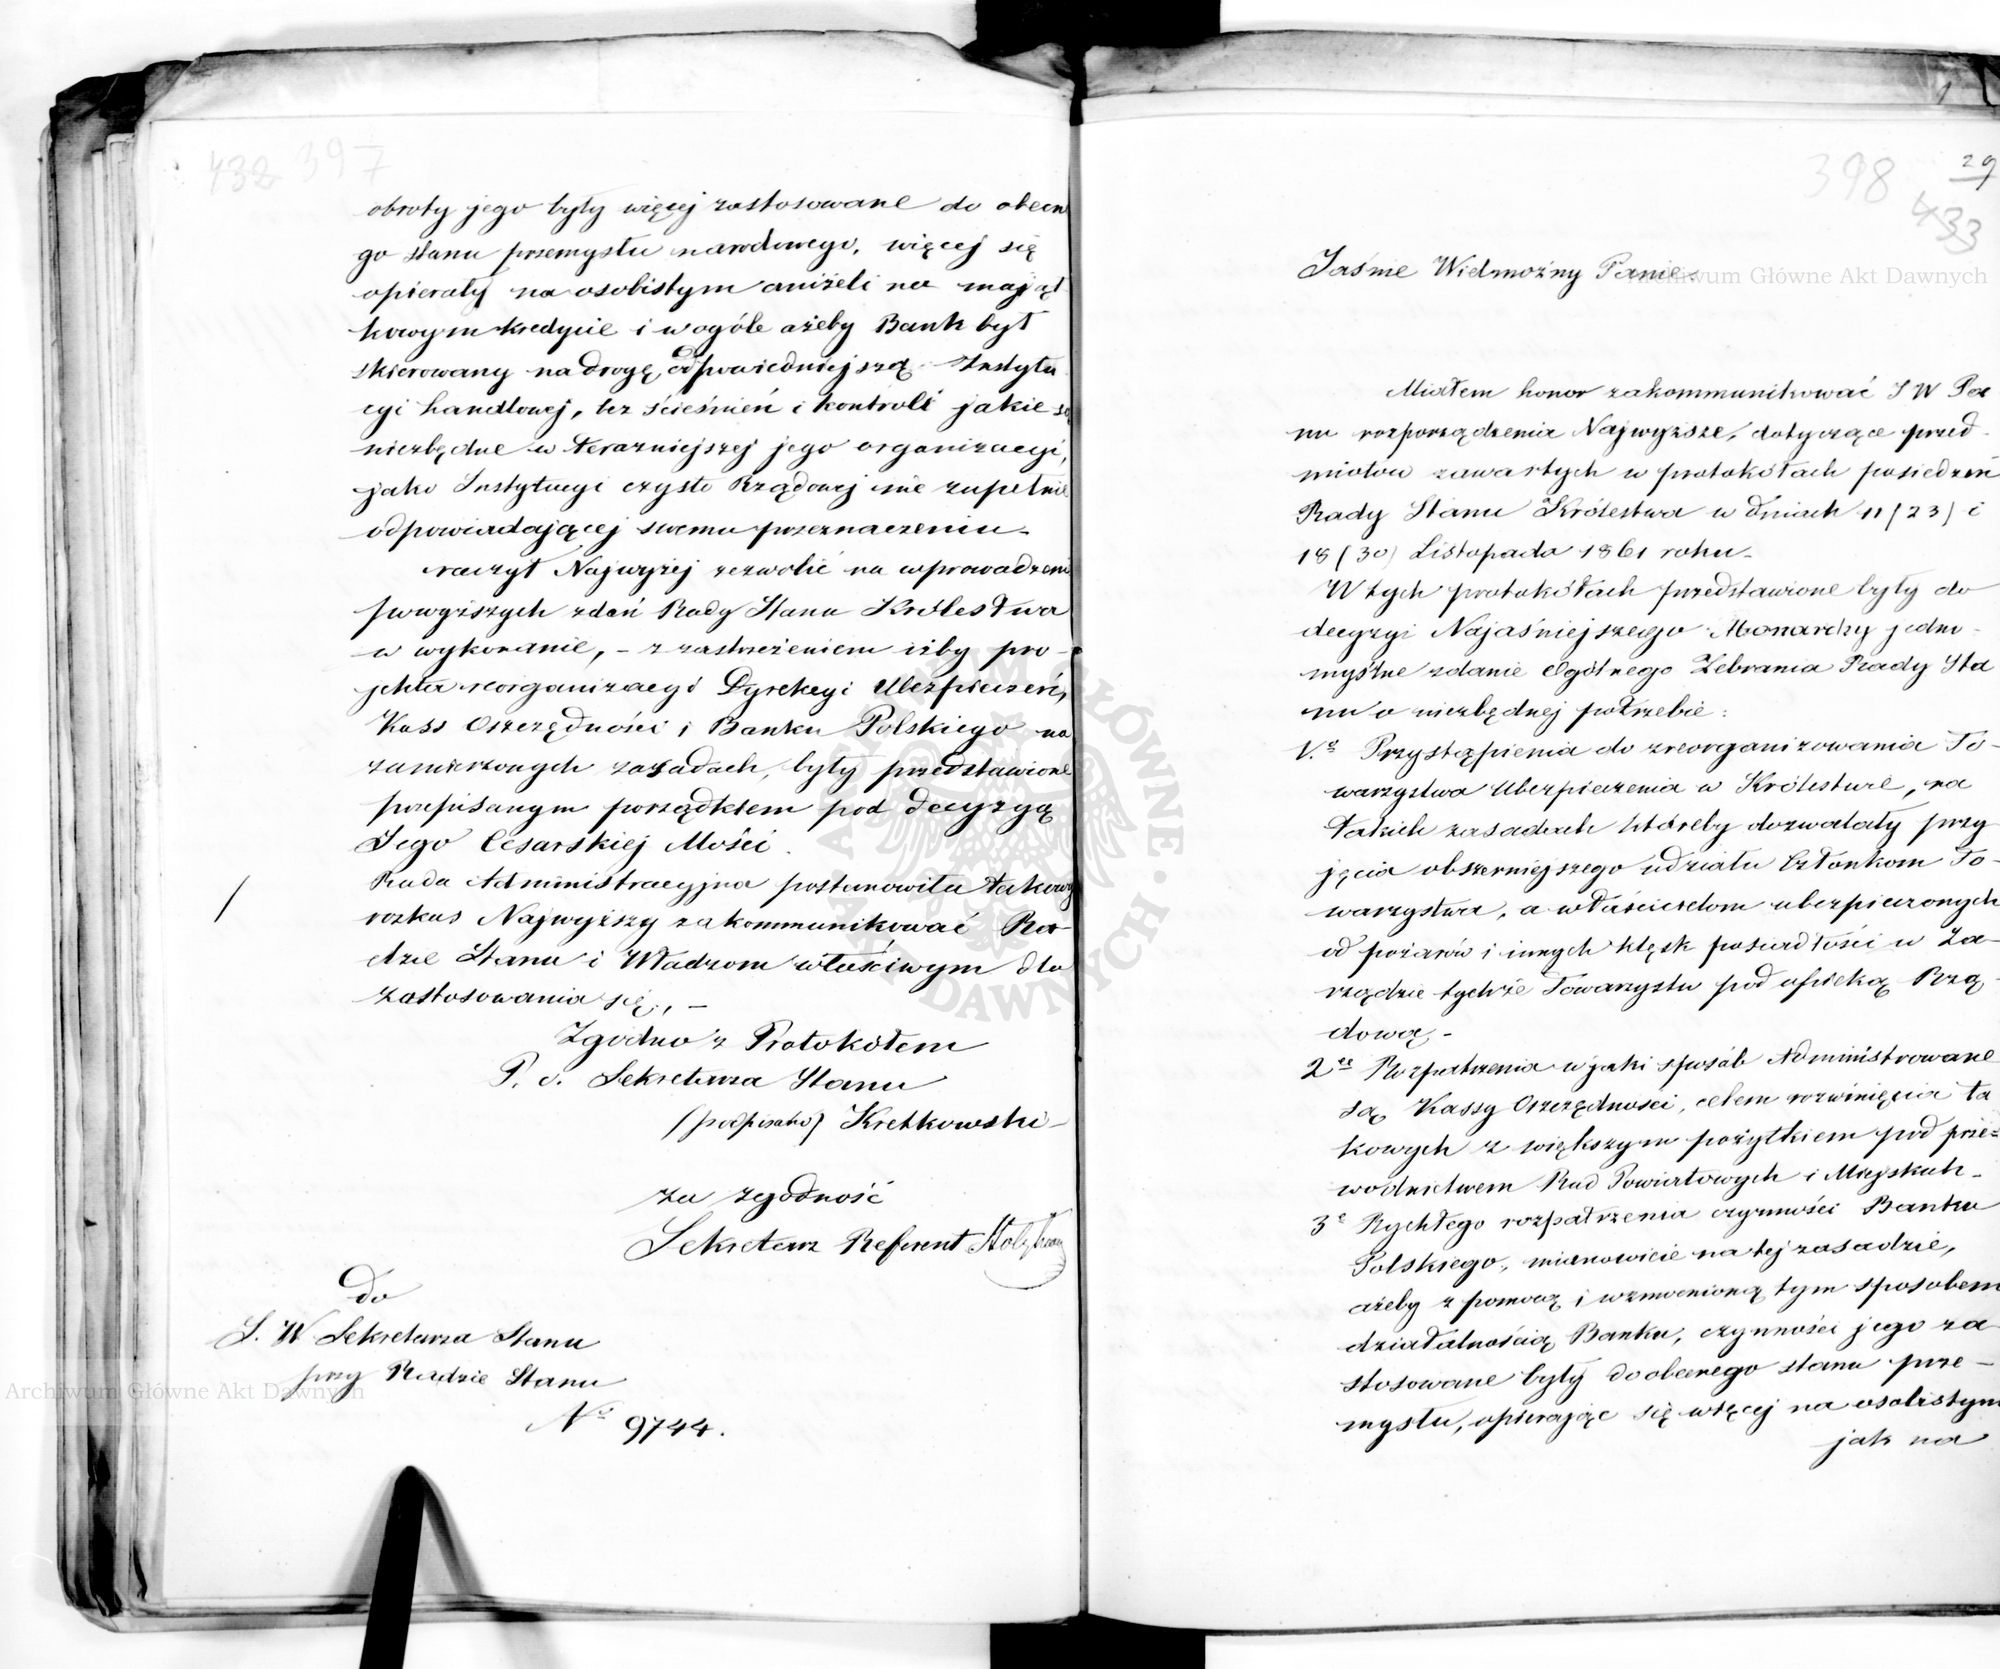 432 397
obroty jego były więcej zastosowane do obecne
go stanu przemysłu narodowego, więcej się
opierały na osobistym aniżeli na mająt
kowym kredycie i wogóle ażeby Bank był
skierowany na drogę odpowiedniejszą Instytu
cyi handlowej, bez ścieśnień i kontroli jakie są
niezbędne w teraźniejszej jego organizacyi,
jako Instytucyi czysto Rządowej nie zupełnie
odpowiadającej swemu przeznaczeniu.
raczył Najwyżej zezwolić na wprowadzenie
powyższych zdań Rady Stanu Królestwa
w wykonanie, – z zastrzeżeniem iżby pro-
jekta reorganizacyi Dyrekcyi Ubezpieczeń,
Kass Oszczędności i Banku Polskiego na
zamierzonych zasadach, były przedstawione
przepisanym porządkiem pod decyzyą
Jego Cesarskiej Mości.
Rada Administracyjna postanowiła takowy
rozkaz Najwyższy zakommunikować Ra-
dzie Stanu i Władzom właściwym dla
zastosowania się, –
Zgodno z Protokółem
P. o. Sekretarza Stanu
(podpisano) Kretkowski –
za zgodność
Sekretarz Referent
Do
J. W Sekretarza Stanu
przy Radzie Stanu
No 9744.
398 29
433
Jaśnie Wielmożny Panie.
Miałem honor zakommunikować J W Pa
nu rozporządzenia Najwyższe, dotyczące przed-
miotów zawartych w protokółach posiedzeń
Rady Stanu Królestwa w dniach 11 (23) i
18 (30) Listopada 1861 roku.
W tych protokółach przedstawione były do
decyzyi Najaśniejszego Monarchy jedno-
myślne zdanie Ogólnego Zebrania Rady Sta
nu o niezbędnej potrzebie:
1.e Przystąpienia do zreorganizowania To-
warzystwa Ubezpieczenia w Królestwie, na
takich zasadach któreby dozwalały przy
jęcia obszerniejszego udziału Członkom To-
warzystwa, a właścicielom ubezpieczonych
od pożarów i innych klęsk posiadłości w Za-
rządzie tychże Towarzystw pod opieką Rzą-
dową, –
2re Rozpatrzenia w jaki sposób Administrowane
są Kassy Oszczędności, celem rozwinięcia ta
kowych z większym pożytkiem pod prze-
wodnictwem Rad Powiatowych i Miejskich –
3e Rychłego rozpatrzenia czynności Banku
Polskiego, mianowicie na tej zasadzie,
ażeby z pomocą i wzmocnioną tym sposobem
działalnością Banku, czynności jego za-
stosowane były do obecnego stanu prze-
mysłu, opierając się więcej na osobistym
jak na
Archiwum Główne Akt Dawnych
Archiwum Główne Akt Dawnych
ARCHIWUM GŁÓWNE AKT DAWNYCH